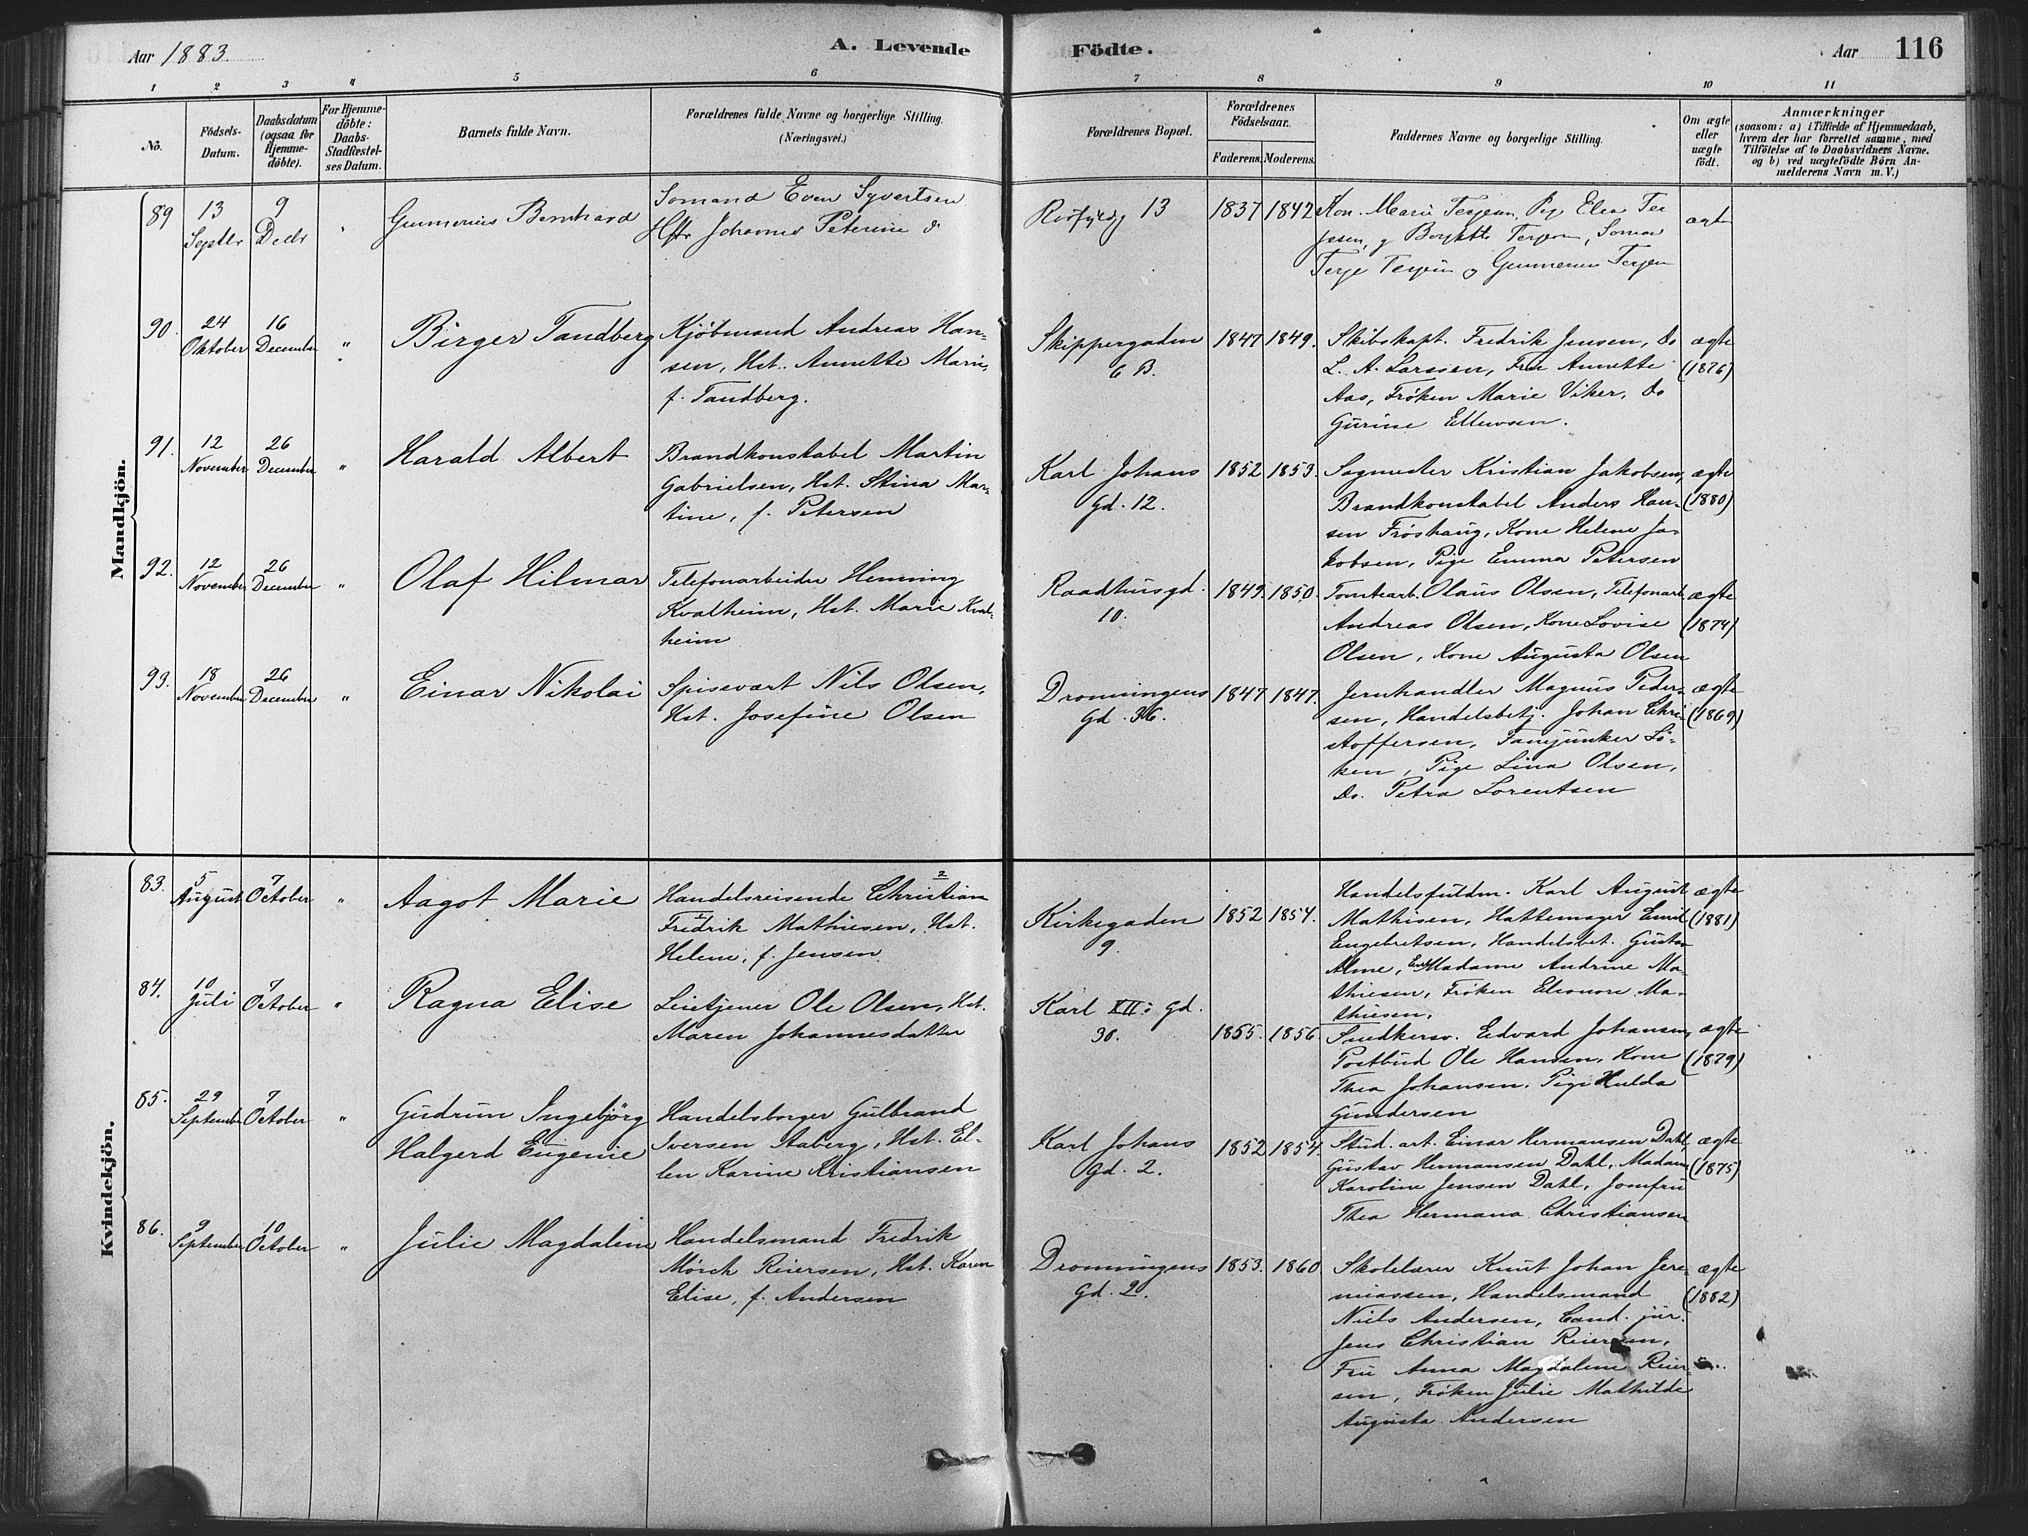 Aar 1883.
A. Levende Födte.
Aar 116
1 2 3 4 5 6 7 8 9 10 11
No.
Födsels-Datum.
Daabsdatum (ogsaa for Hjemmedöbte).
For Hjemmedöbte: Daabs-Stadfestelses Datum.
Barnets fulde Navn.
Forældrenes fulde Navne og borgerlige Stilling.
(Næringsvei.)
Forældrenes Bopæl.
Forældrenes Födselsaar.
Faderens. Moderens.
Faddernes Navne og borgerlige Stilling.
Om ægte eller uægte födt.
Anmærkninger
(saasom: a) i Tilfælde af Hjemmedaab,
hvem der har forrettet samme, med
Tilföielse af to Daabsvidners Navne.
og b) ved uægtefödte Börn An-
melderens Navn m. V.)
Mandkjön.
89 13 Septbr 9 Decbr
Gunnerius Bernhard
Sømand Even Syvertsen
Hstr Johanne Peterine
13
1837 1842
Kon. Marie Terjesen, Pig Elen Ter
jesen, Terjesen, Sømand
Terje Terjesen og Gunnerius Terjesen
ægte
90. 24 Oktober 16 December "
Birger Tandberg
Kjöbmand Andreas Han-
sen, Hst. Annette Marie,
f. Tandberg.
Skippergaden
6 B.
1847 1849.
Skibskapt. Fredrik Jensen, Do
L. A. Larssen, Fru Annette
Aas, Fröken Marie Viker, Do
Gurine Ellewsen.
ægte
(1876)
91. 12 November 26 December "
Harald Albert
Brandkonstabel Martin
Gabrielsen, Hst. Stina Mar-
tine, f. Petersen
Karl Johans
Gd. 12.
1852 1853.
Sagmester Kristian Jakobsen,
Brandkonstabel Anders Han-
sen Fröshaug, Kone Helene Ja-
kobsen, Pige Emma Petersen
ægte
(1880)
92. 12 November 26 December "
Olaf Hilmar
Telefonarbeider Henning
Kvalheim, Hst. Marie Kval-
heim
Raadhusgd.
10.
1849. 1850.
Tomtearb. Olaus Olsen, Telefonarb.
Andreas Olsen, Kone Lovise
Olsen, Kone Augusta Olsen
ægte
(1874)
93. 18 November 26 December "
Einar Nikolai
Spisevært Nils Olsen,
Hst. Josefine Olsen
Dronningens
Gd. 36.
1847 1847.
Jernhandler Magnus Peder-
sen, Handelsbetj. Johan Chri-
stoffersen, Fanejunker Lö-
ken, Pige Lina Olsen,
Do. Petra Lorentsen
ægte
(1869)
Kvindekjön.
83. 5 August 7 October "
Aagot Marie
Handelsreisende Christian
Fredrik Mathiesen, Hst.
Helene, f. Jensen
Kirkegaden
9.
1852 1854.
Handelsfuldm. Karl August
Mathisen, Hattemager Emil
Engebretsen, Handelsbet. Gustav
Alme, Enke Madame Andrine Ma-
thiesen, Fröken Eleonore Ma-
thiesen.
ægte
(1881)
84. 10 Juli 7 October "
Ragna Elise
Leietjener Ole Olsen, Hst.
Maren Johannesdatter
Karl XII: Gd.
30.
1855. 1856.
Snedkersv. Edvard Johansen,
Postbud Ole Hansen, Kone
Thea Johansen, Pige Hulda
Gundersen
ægte
(1879)
85. 29 September 7 October "
Gudrun Ingebjörg
Halgerd Eugenie
Handelsborger Gulbrand
Iversen Staberg, Hst. El-
len Karine Kristiansen
Karl Johans
Gd. 2.
1852 1854.
Stud. art. Einar Hermansen Dahl,
Gustav Hermansen Dahl, Madam
Karoline Jensen Dahl, Jomfru
Thea Hermana Christiansen
ægte
(1875)
86. 9 September 10 October "
Julie Magdalene
Handelsmand Fredrik
Mörch Reiersen, Hst. Karen
Elise, f. Andersen
Dronningens
Gd. 2.
1853. 1860
Skolelærer Knut Johan Jere-
miassen, Handelsmand
Niels Andersen, Cand. jur.
Jens Christian Reiersen,
Fru Anna Magdalene Reier-
sen, Fröken Julie Mathilde
Augusta Andersen
ægte
(1882)